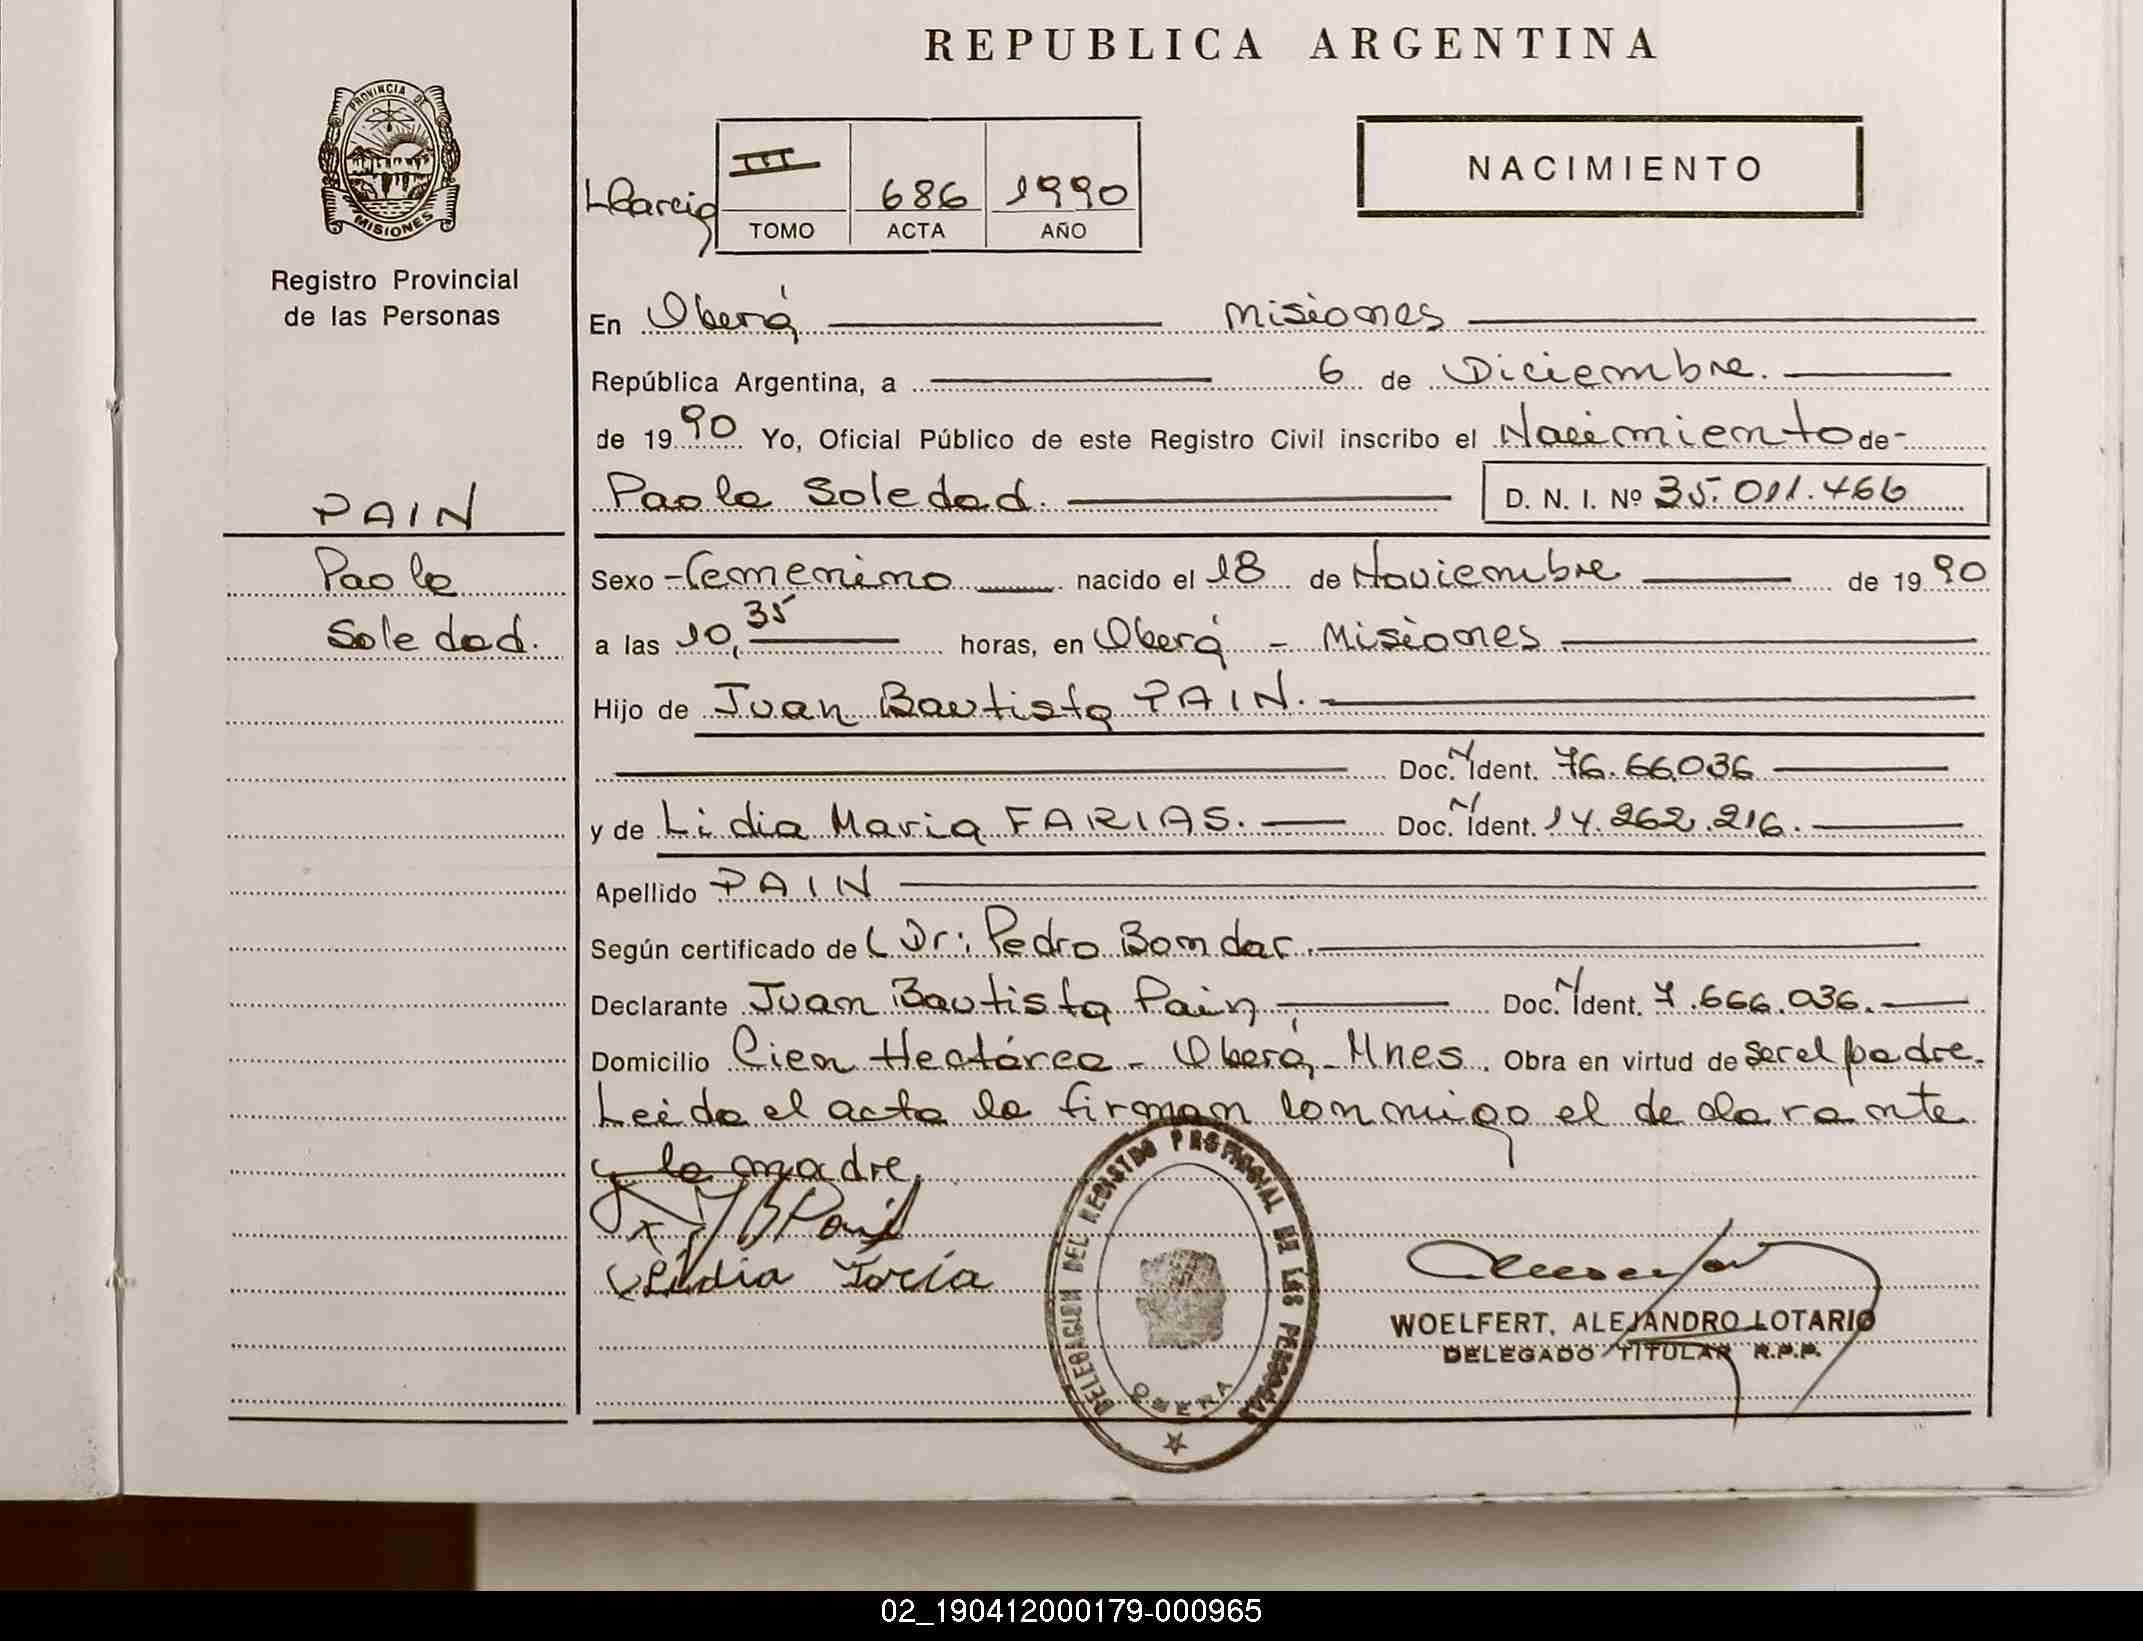 REPUBLICA ARGENTINA
PROVINCIA DE
MISIONES
Registro Provincial
de las Personas
III 686 1990
TOMO ACTA AÑO
NACIMIENTO
En Oberá Misiones
República Argentina, a 6 de Diciembre.
de 1990 Yo, Oficial Público de este Registro Civil inscribo el Nacimiento de
PAIN
Paola Soledad. D. N. I. Nº 35.011.466
Paola
Soledad.
Sexo Femenino nacido el 18 de Noviembre de 1990
a las 10,35 horas, en Oberá - Misiones
Hijo de Juan Bautista PAIN.
Doc. N Ident. 76.66036
y de Lidia Maria FARIAS. Doc. N Ident. 14.262.216.
Apellido PAIN
Según certificado de Dr: Pedro Bondar.
Declarante Juan Bautista Pain, Doc. N Ident. 7.666.036.
Domicilio Cien Hectárea - Oberá - Mnes. Obra en virtud de ser el padre.
Leida el acta la firman conmigo el declarante
y la madre,
Lidia Faria
DELEGACION DEL REGISTRO PROVINCIAL DE LAS PERSONAS
OBERA
WOELFERT, ALEJANDRO LOTARIO
DELEGADO TITULAR R.P.P.
02_190412000179-000965